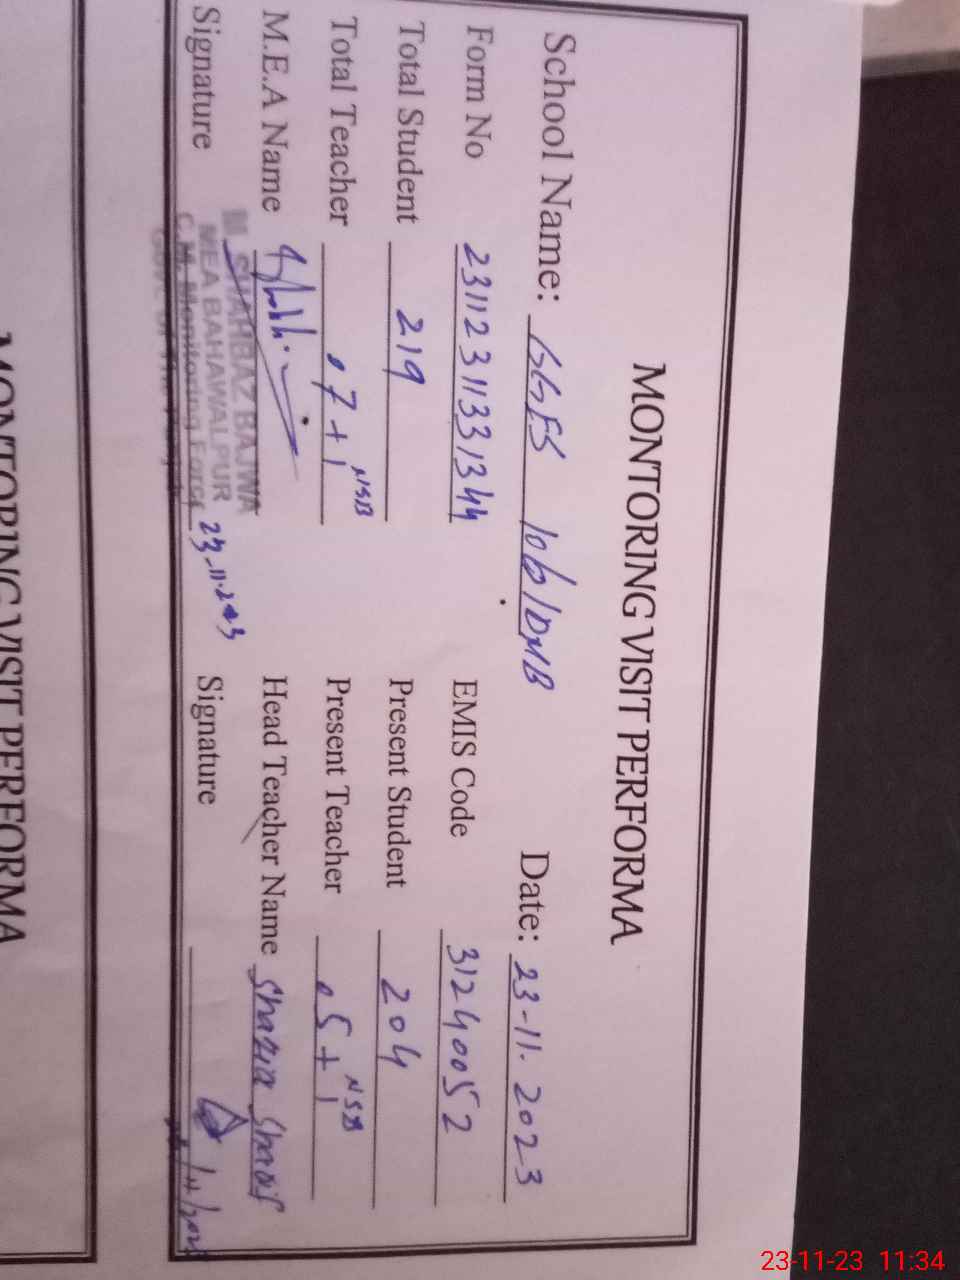 MONTORING VISIT PERFORMA
School Name: GGES 106/DNB Date: 23-11-2023
Form No 23112311331344 EMIS Code 31240052
Total Student 219 Present Student 204
Total Teacher 07+1 NSB Present Teacher 05+1 NSB
M.E.A Name Head Teacher Name Shazia Sharif
M. SHAHBAZ BAJWA
MEA BAHAWALPUR
C.M. Monitoring Force
Govt. of The
Signature 23-11-2023 Signature
MONTORING VISIT PERFORMA
23-11-23 11:34